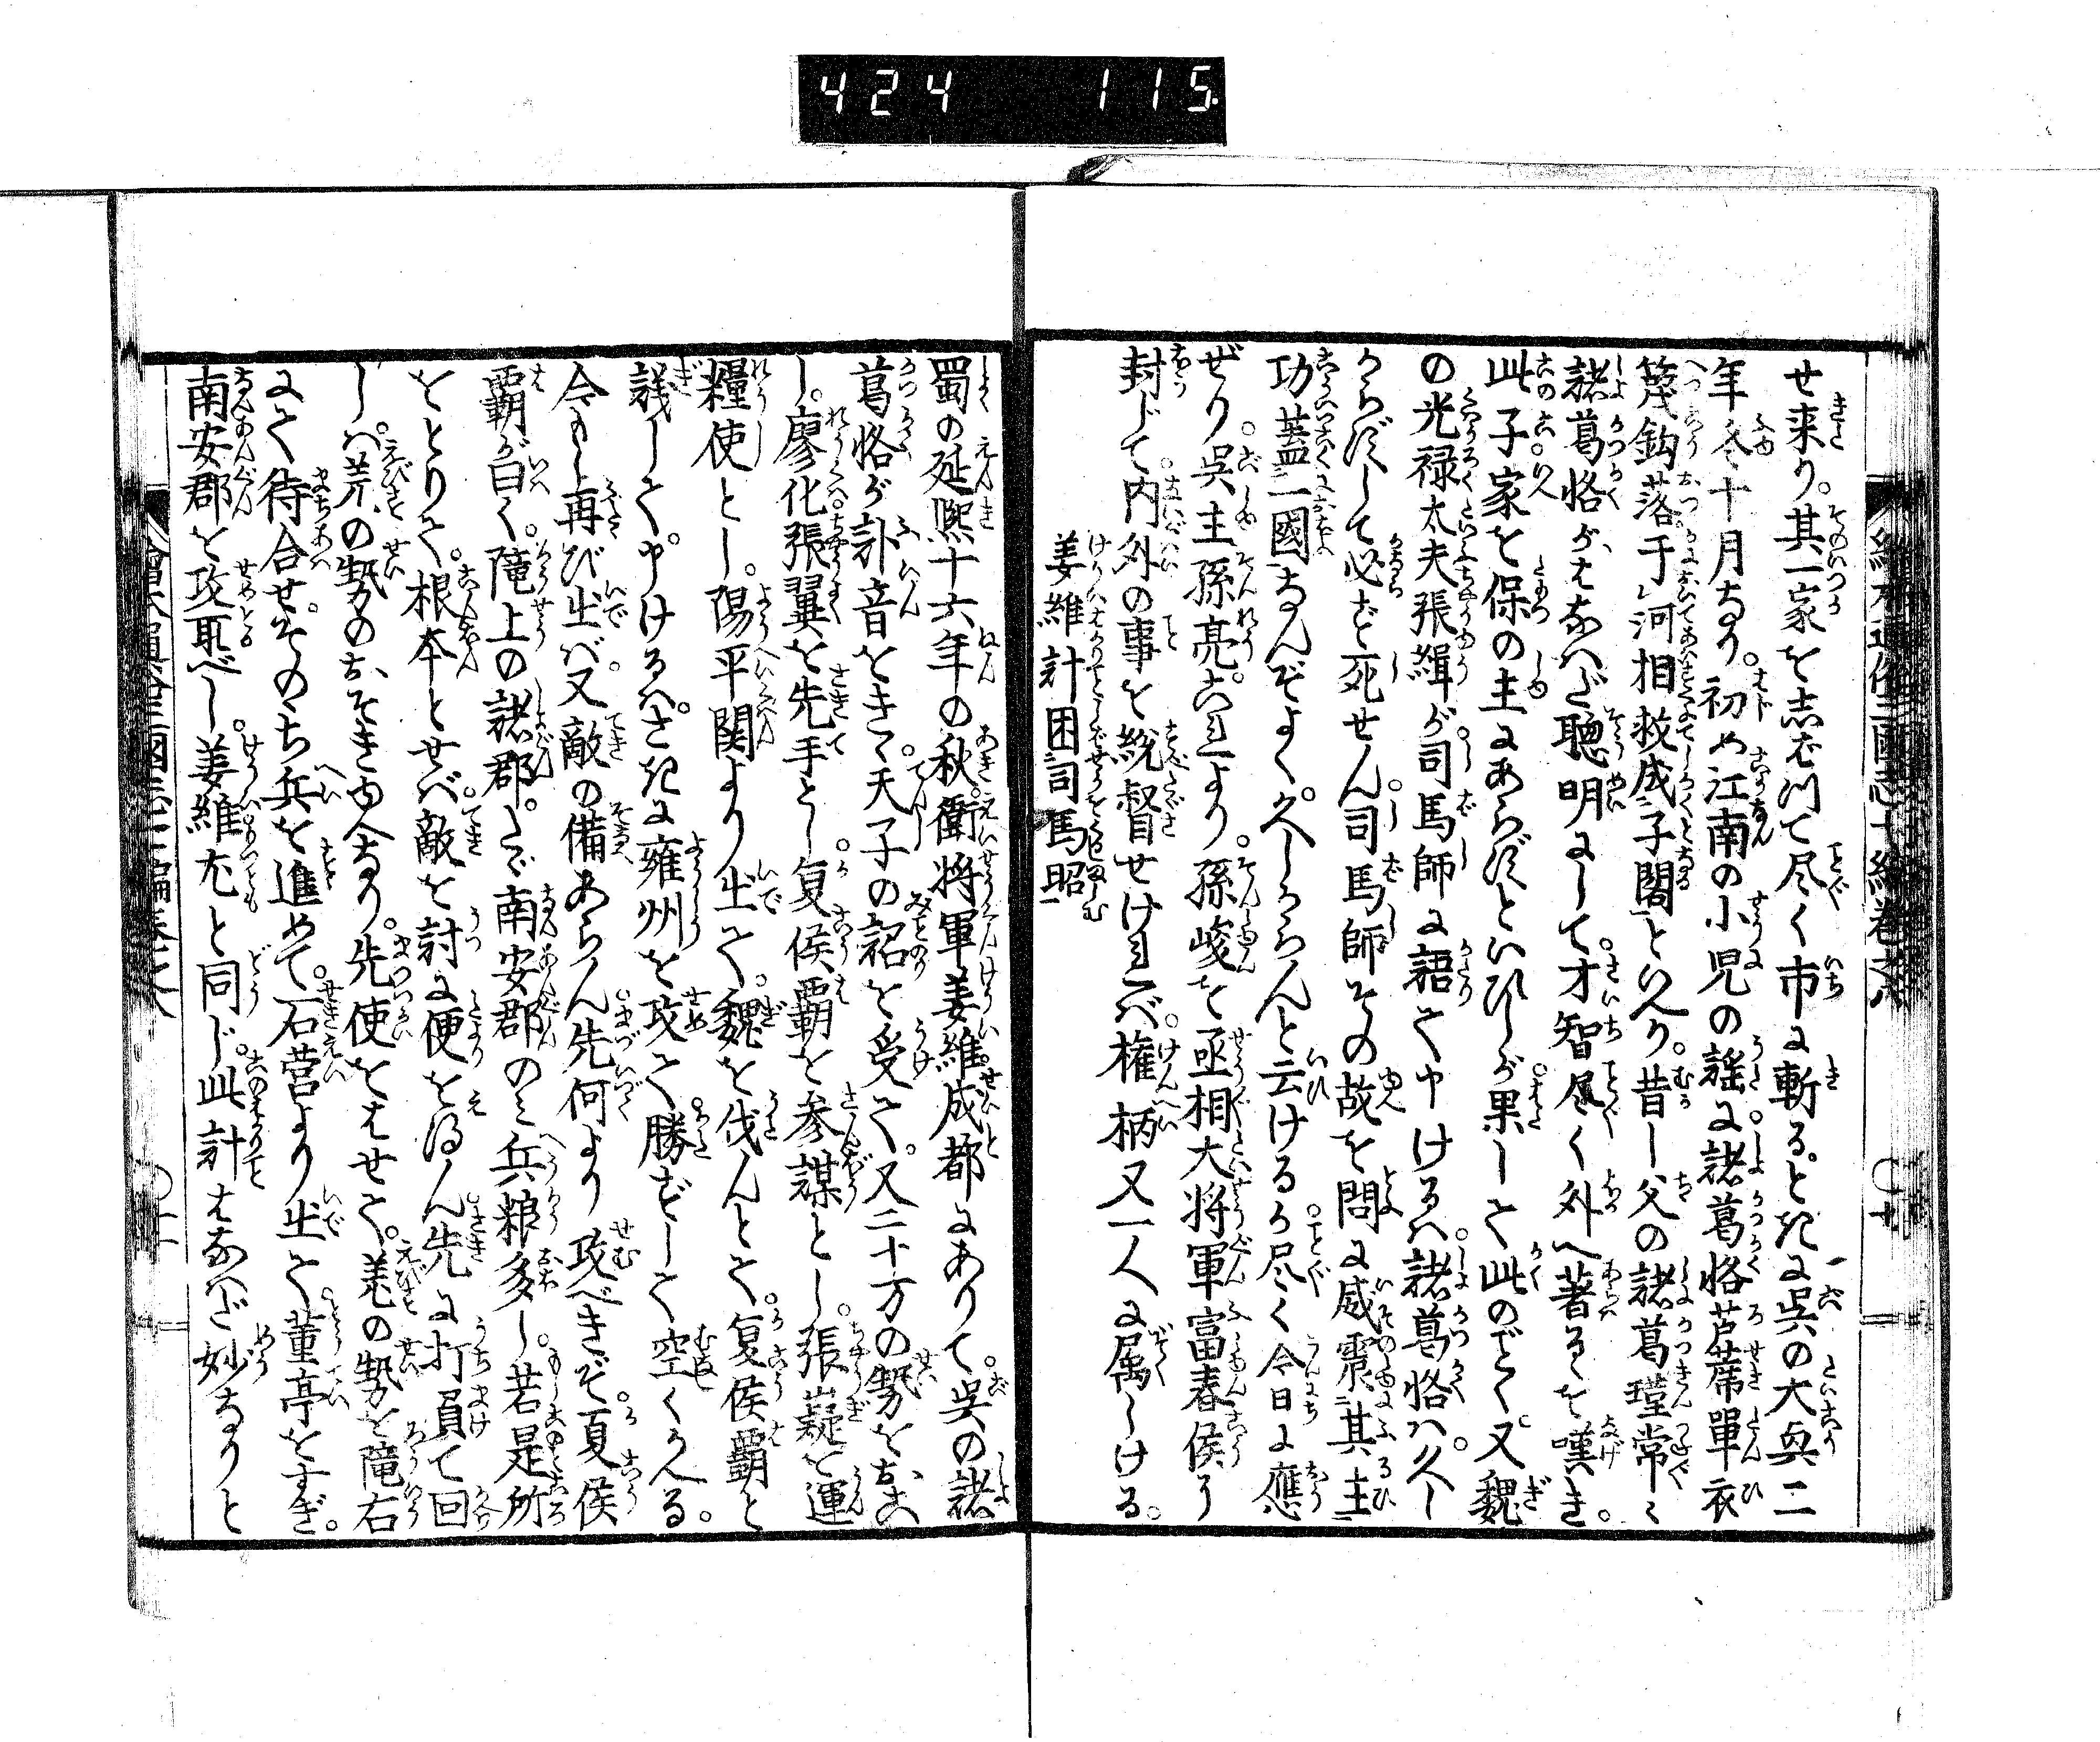 424 115
せ来り。其一家を志ばつて尽く市に斬るときに呉の大興二
年冬十月なり。初め江南の小児の謡に。諸葛恪芦蓆單衣
篾鈎落于何相救成子閣といへり。昔し父の諸葛瑾常に
諸葛恪がはなはだ聰明にして。才智尽く外へ著るゝを嘆き。
此子家を保の主にあらずといひしが果して此のごとく又魏
の光禄大夫張緝が司馬師に語て申けるハ。諸葛恪ハ。久し
からずして必ず死せん司馬師その故を問に威震其主
功蓋一國なんぞよく。久しからんと云けるが尽く今日に應
ぜり。呉主孫亮。これより。孫峻を丞相大将軍富春侯に
封じて。内外の事を総督せければ。権柄又一人に属しける。
姜維計困司馬昭
蜀の延熙十六年の秋。衛将軍姜維成都にありて。呉の諸
葛恪が訃音をきゝ。天子の詔を受て。又二十万の勢をおこ
し。廖化張翼を先手とし。夏侯覇を参謀とし。張嶷を運
糧使とし。陽平関より出て。魏を伐んとて。夏侯覇と
議して。申けるハ。さきに雍州を攻て。勝ずして空くかへる。
今もし再び出バ。又敵の備あらん先何より攻べきぞ。夏侯
覇が曰く。隴上の諸郡。たゞ南安郡のミ兵粮多し。若是所
をとりて。根本とせば。敵を討に便を得ん。先に打負て回
しハ。羌の勢のおそきゆへなり。先使をはせて。羌の勢を隴右
にて待合せ。そのち兵を進めて。石営より出て。董亭をすぎ。
南安郡を攻取べし。姜維尤と同じ。此計はなはだ妙なりと